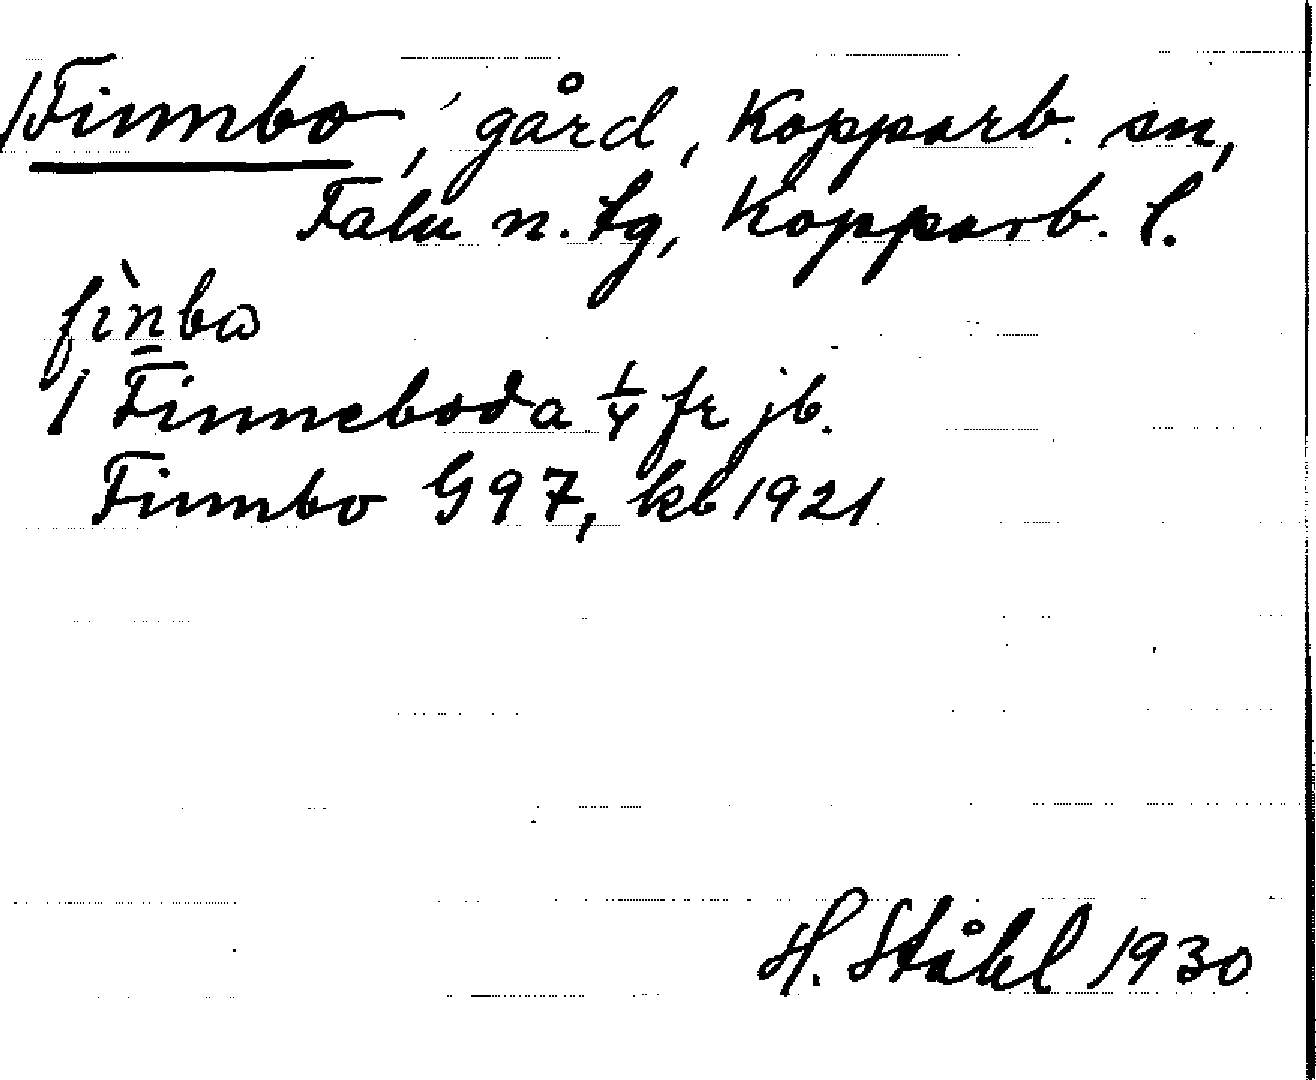 /Finnbo, gård, Kopparb. sn,
Falu n. tg, Kopparb. l.
fìnbω
/ Finneboda 1/4 fr jb.
Finnbo G97, kb 1921
H. Ståhl 1930